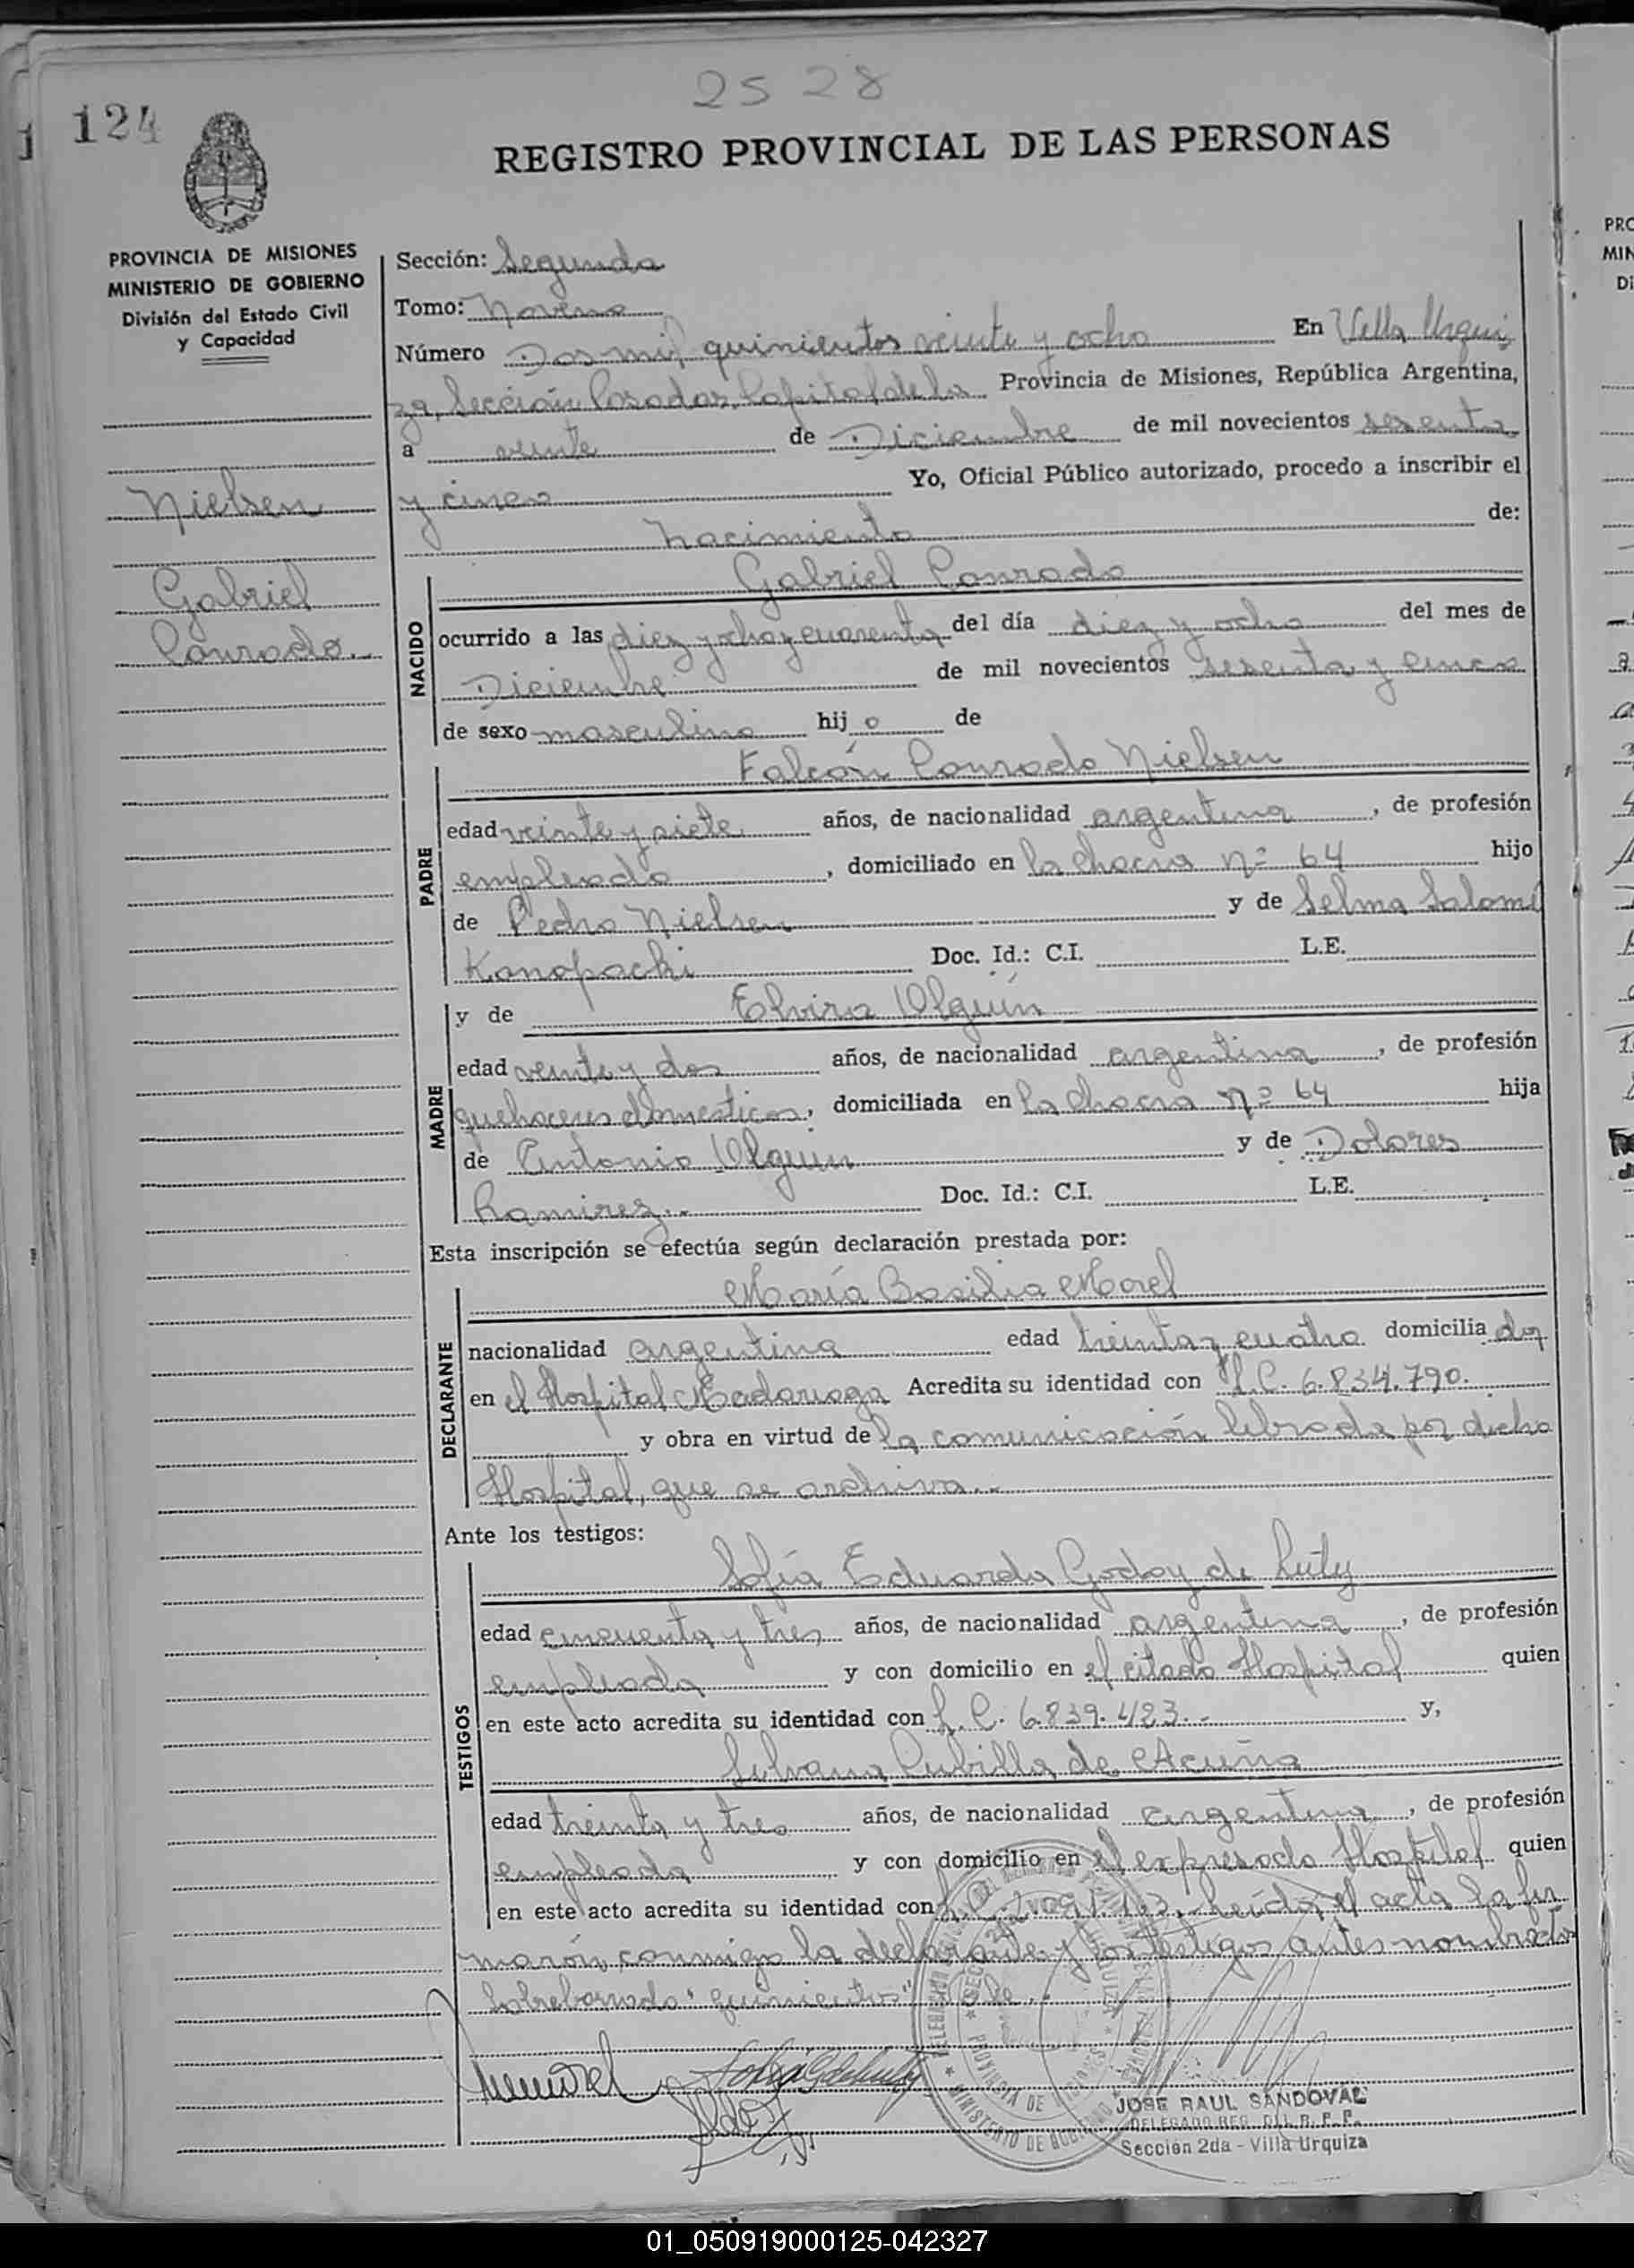 2528
124
REGISTRO PROVINCIAL DE LAS PERSONAS
PROVINCIA DE MISIONES
MINISTERIO DE GOBIERNO
División del Estado Civil
y Capacidad
Nielsen
Gabriel
Conrado.
Sección: Segunda
Tomo: Noveno
Número Dos mil quinientos veinte y ocho En Villa Urqui
za, Sección Posadas, Capital de la Provincia de Misiones, República Argentina,
a veinte de Diciembre de mil novecientos sesenta
y cinco Yo, Oficial Público autorizado, procedo a inscribir el
nacimiento de:
NACIDO
Gabriel Conrado
ocurrido a las diez y ocho y cuarenta del día diez y ocho del mes de
Diciembre de mil novecientos sesenta y cinco
de sexo masculino hijo de
PADRE
Falcón Conrado Nielsen
edad veinte y siete años, de nacionalidad argentina, de profesión
empleado, domiciliado en la chacra nº 64 hijo
de Pedro Nielsen y de Selma Salomé
Konopacki Doc. Id.: C.I. L.E.
MADRE
y de Elvira Olguín
edad veinte y dos años, de nacionalidad argentina, de profesión
quehaceres domésticos, domiciliada en la chacra nº 64 hija
de Antonio Olguín y de Dolores
Ramirez.. Doc. Id.: C.I. L.E.
Esta inscripción se efectúa según declaración prestada por:
DECLARANTE
María Basilia Morel
nacionalidad argentina edad treinta y cuatro domiciliada
en el Hospital Madariaga Acredita su identidad con L.C. 6.834.790.
y obra en virtud de la comunicación librada por dicho
Hospital, que se archiva..
Ante los testigos:
TESTIGOS
Sofía Eduarda Godoy de
edad cincuenta y tres años, de nacionalidad argentina, de profesión
empleada y con domicilio en el citado Hospital quien
en este acto acredita su identidad con L.C. 6.839.423.- y,
Silvana Cubilla de Acuña
edad treinta y tres años, de nacionalidad argentina, de profesión
empleada y con domicilio en el expresado Hospital quien
en este acto acredita su identidad con L.C. Leída el acta la fir
maron conmigo la declarante y los testigos antes nombrados
Sobreborrado "quinientos" Vale..
JOSE RAUL SANDOVAL
DELEGADO REG. DEL R. P. P.
Sección 2da - Villa Urquiza
01_050919000125-042327